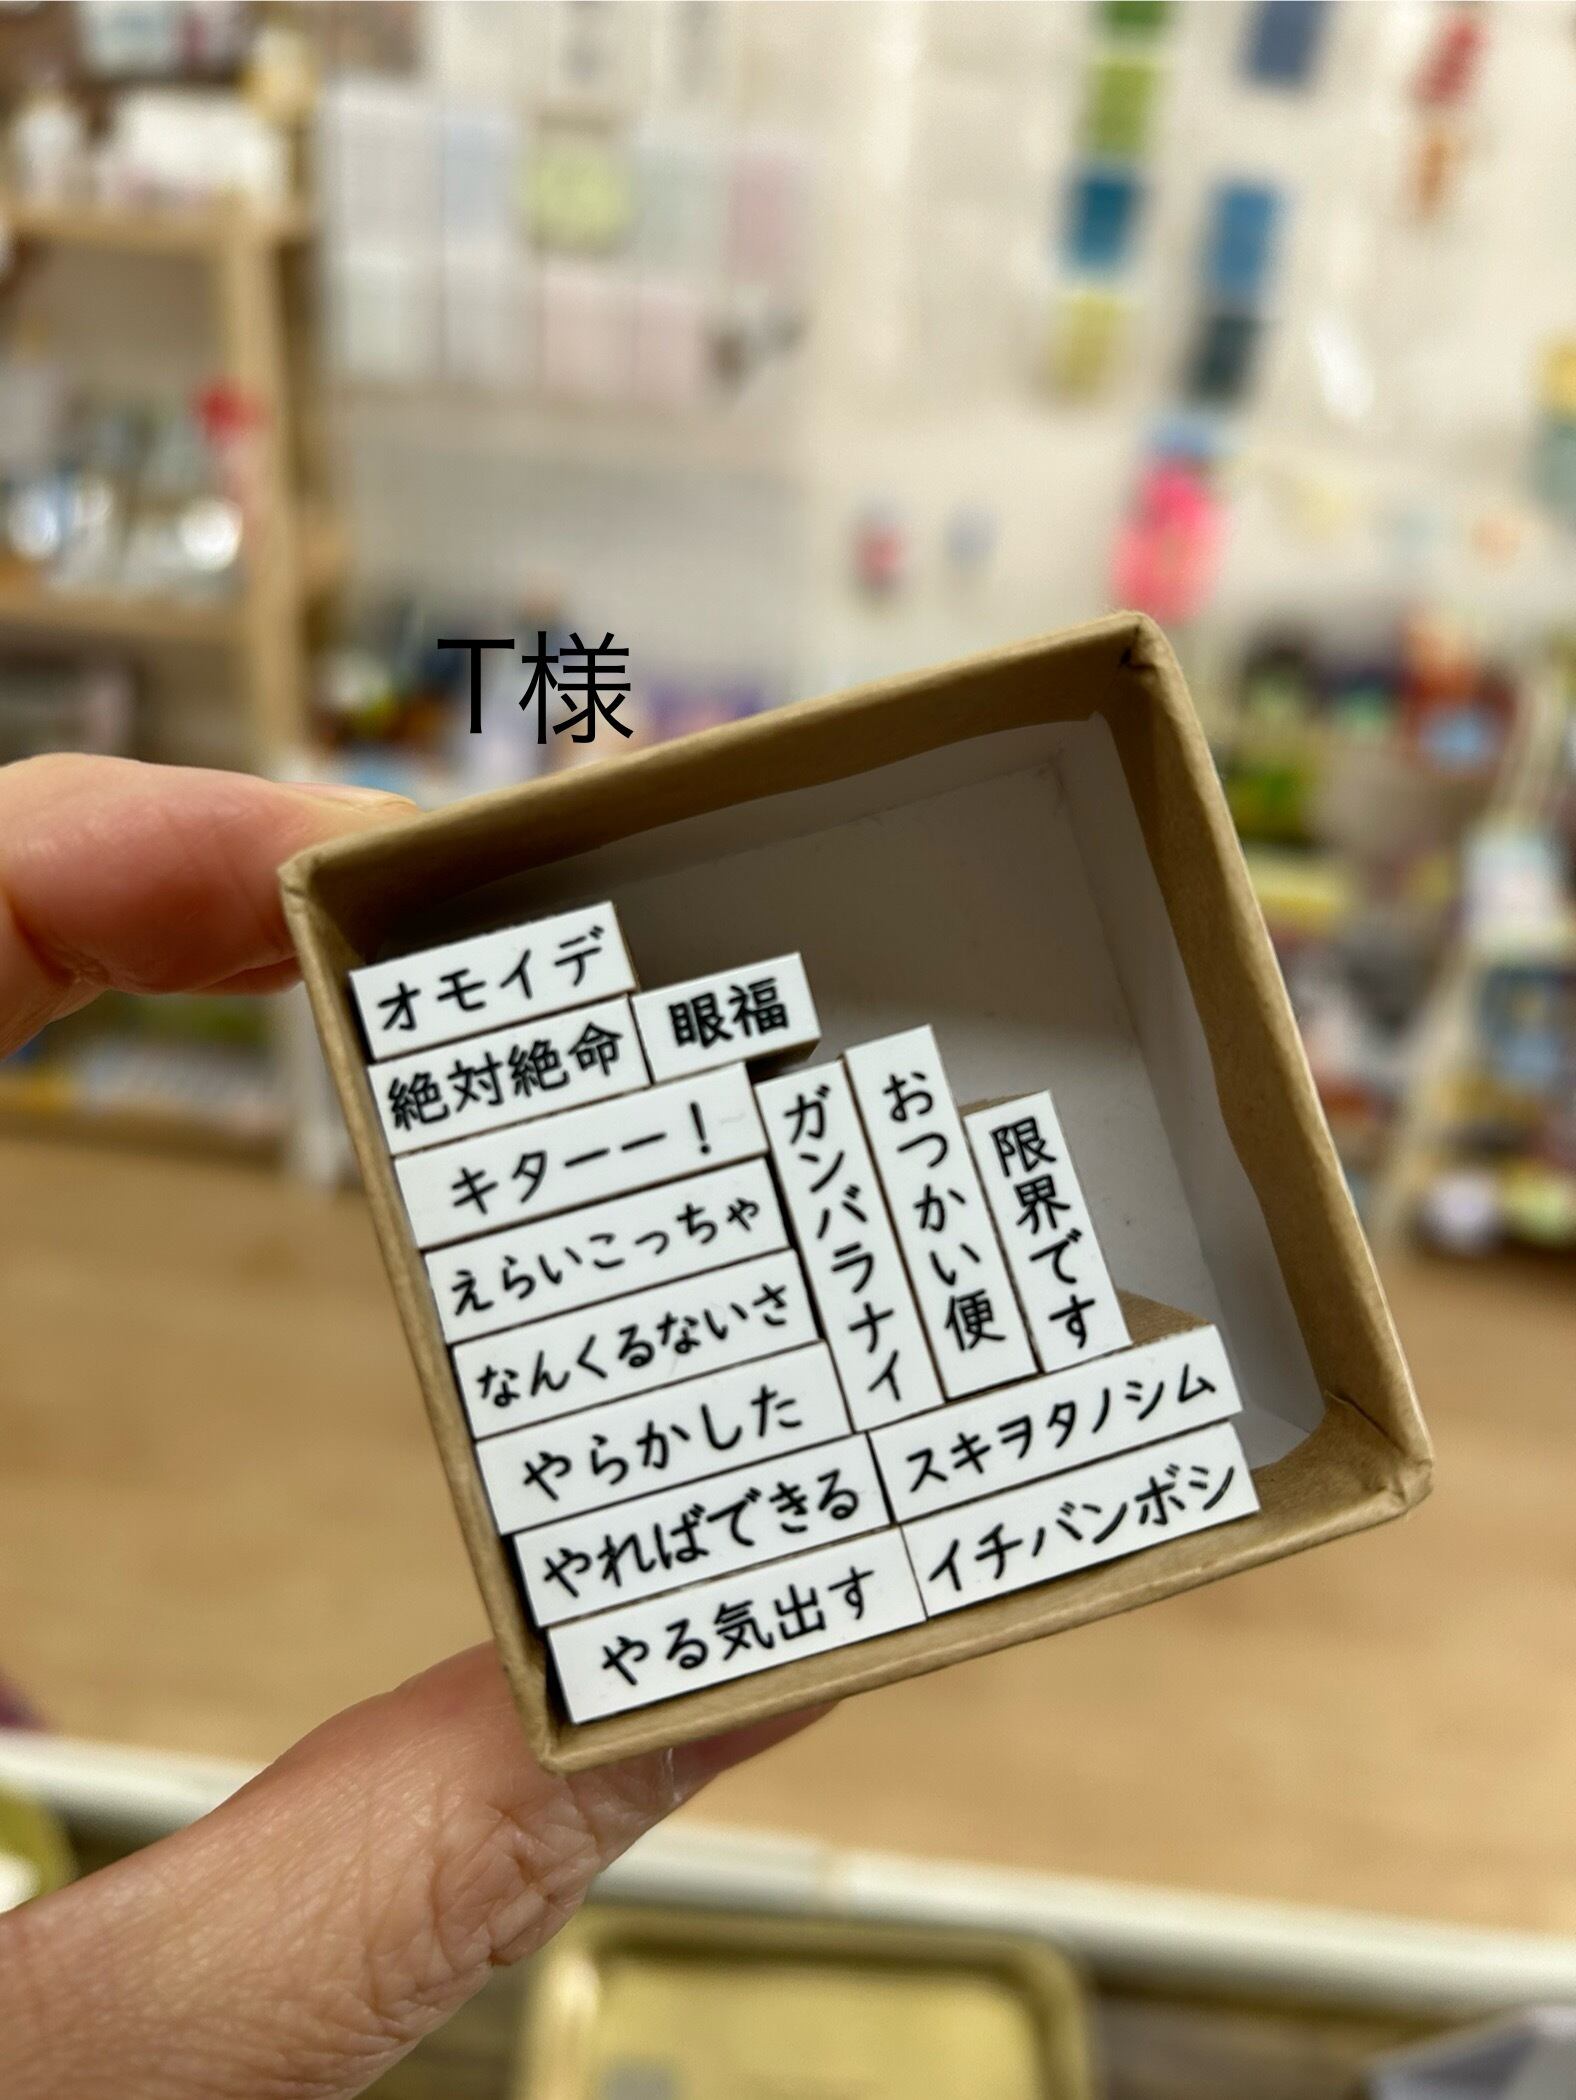 T様
オモイデ
絶対絶命
眼福
キターー！
えらいこっちゃ
なんくるないさ
やらかした
やればできる
やる気出す
ガンバラナイ
おつかい便
限界です
スキヲタノシム
イチバンボシ